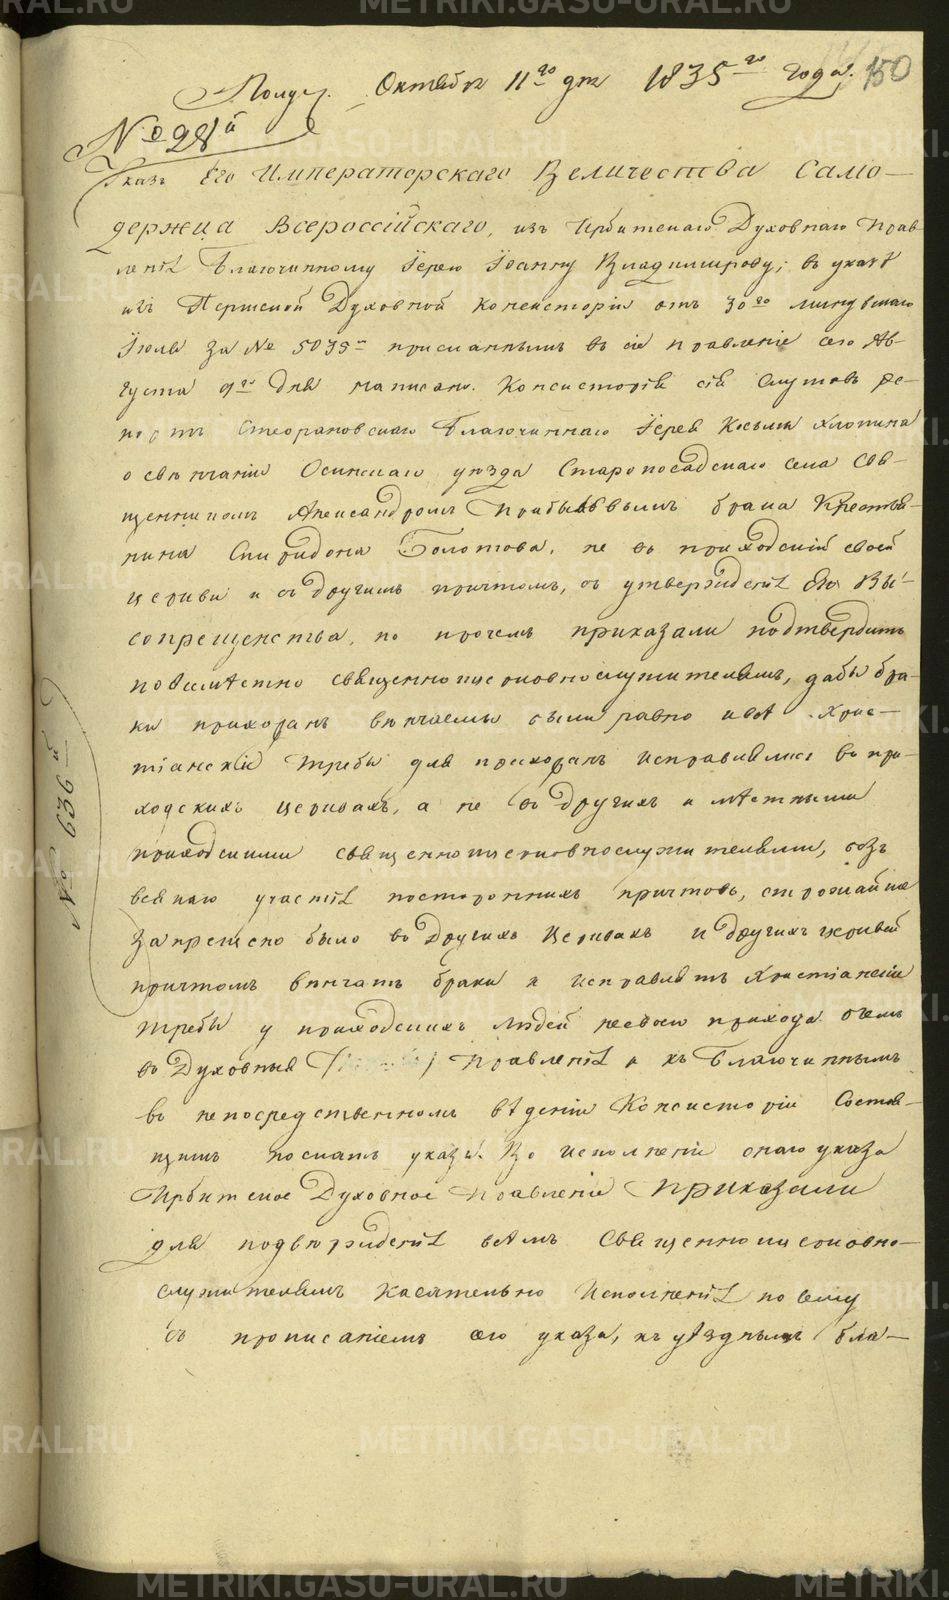 150
Получ. Октября 11го дня 1835го года.
№ 28й
Указъ Его Императорскаго Величества Само-
держца Всероссійскаго, изъ Ирбитскаго Духовнаго Прав
ленія Благочинному Іерею Іоанну Владимирову; въ указѣ
изъ Пермской Духовной Консисторіи отъ 30го минувшаго
Іюля за № 5035 присланнымъ въ сіе правленіе сего Ав-
густа 9го дня написано. Консисторія сія слушавъ ре-
портъ Благочиннаго Іерея Космы Хлопина
о свѣнчаніи Осинскаго уѣзда Старопосадскаго села Свя-
щенникомъ Александромъ брака Крестья-
нина Спиридона Болотова, не въ приходской своей
церкви и съ другимъ причтомъ, съ утвержденія Его Вы-
сопреценства, по прочемъ приказали подтвердить
повсемѣстно священноцерковнослужителямъ, дабы бра-
ки прихожанъ вѣнчаемы были равно и всѣ Хрис-
тіанскія требы для прихожанъ исправлялись въ при-
ходскихъ церквахъ, а не въ другихъ и мѣстными
приходскими священноцерковнослужителями, безъ
всякаго участія постороннихъ причтовъ, строжайше
запрещено было въ другихъ церквахъ и другихъ церквей
причтомъ вѣнчать браки и исправлять Христіанскія
требы у приходскихъ людей несвоего прихода о чемъ
въ Духовныя Правленія и къ Благочиннымъ
въ непосредственномъ вѣденіи Консисторіи Состоя-
щимъ послать указы. Во исполненіе онаго указа
Ирбитское Духовное Правленіе Приказали
для подтвержденія всѣмъ Священноцерковно-
служителямъ касательно Исполненія по сему
съ прописаніемъ сего указа, къ уѣзднымъ бла-
№ 636й
METRIKI.GASO-URAL.RU